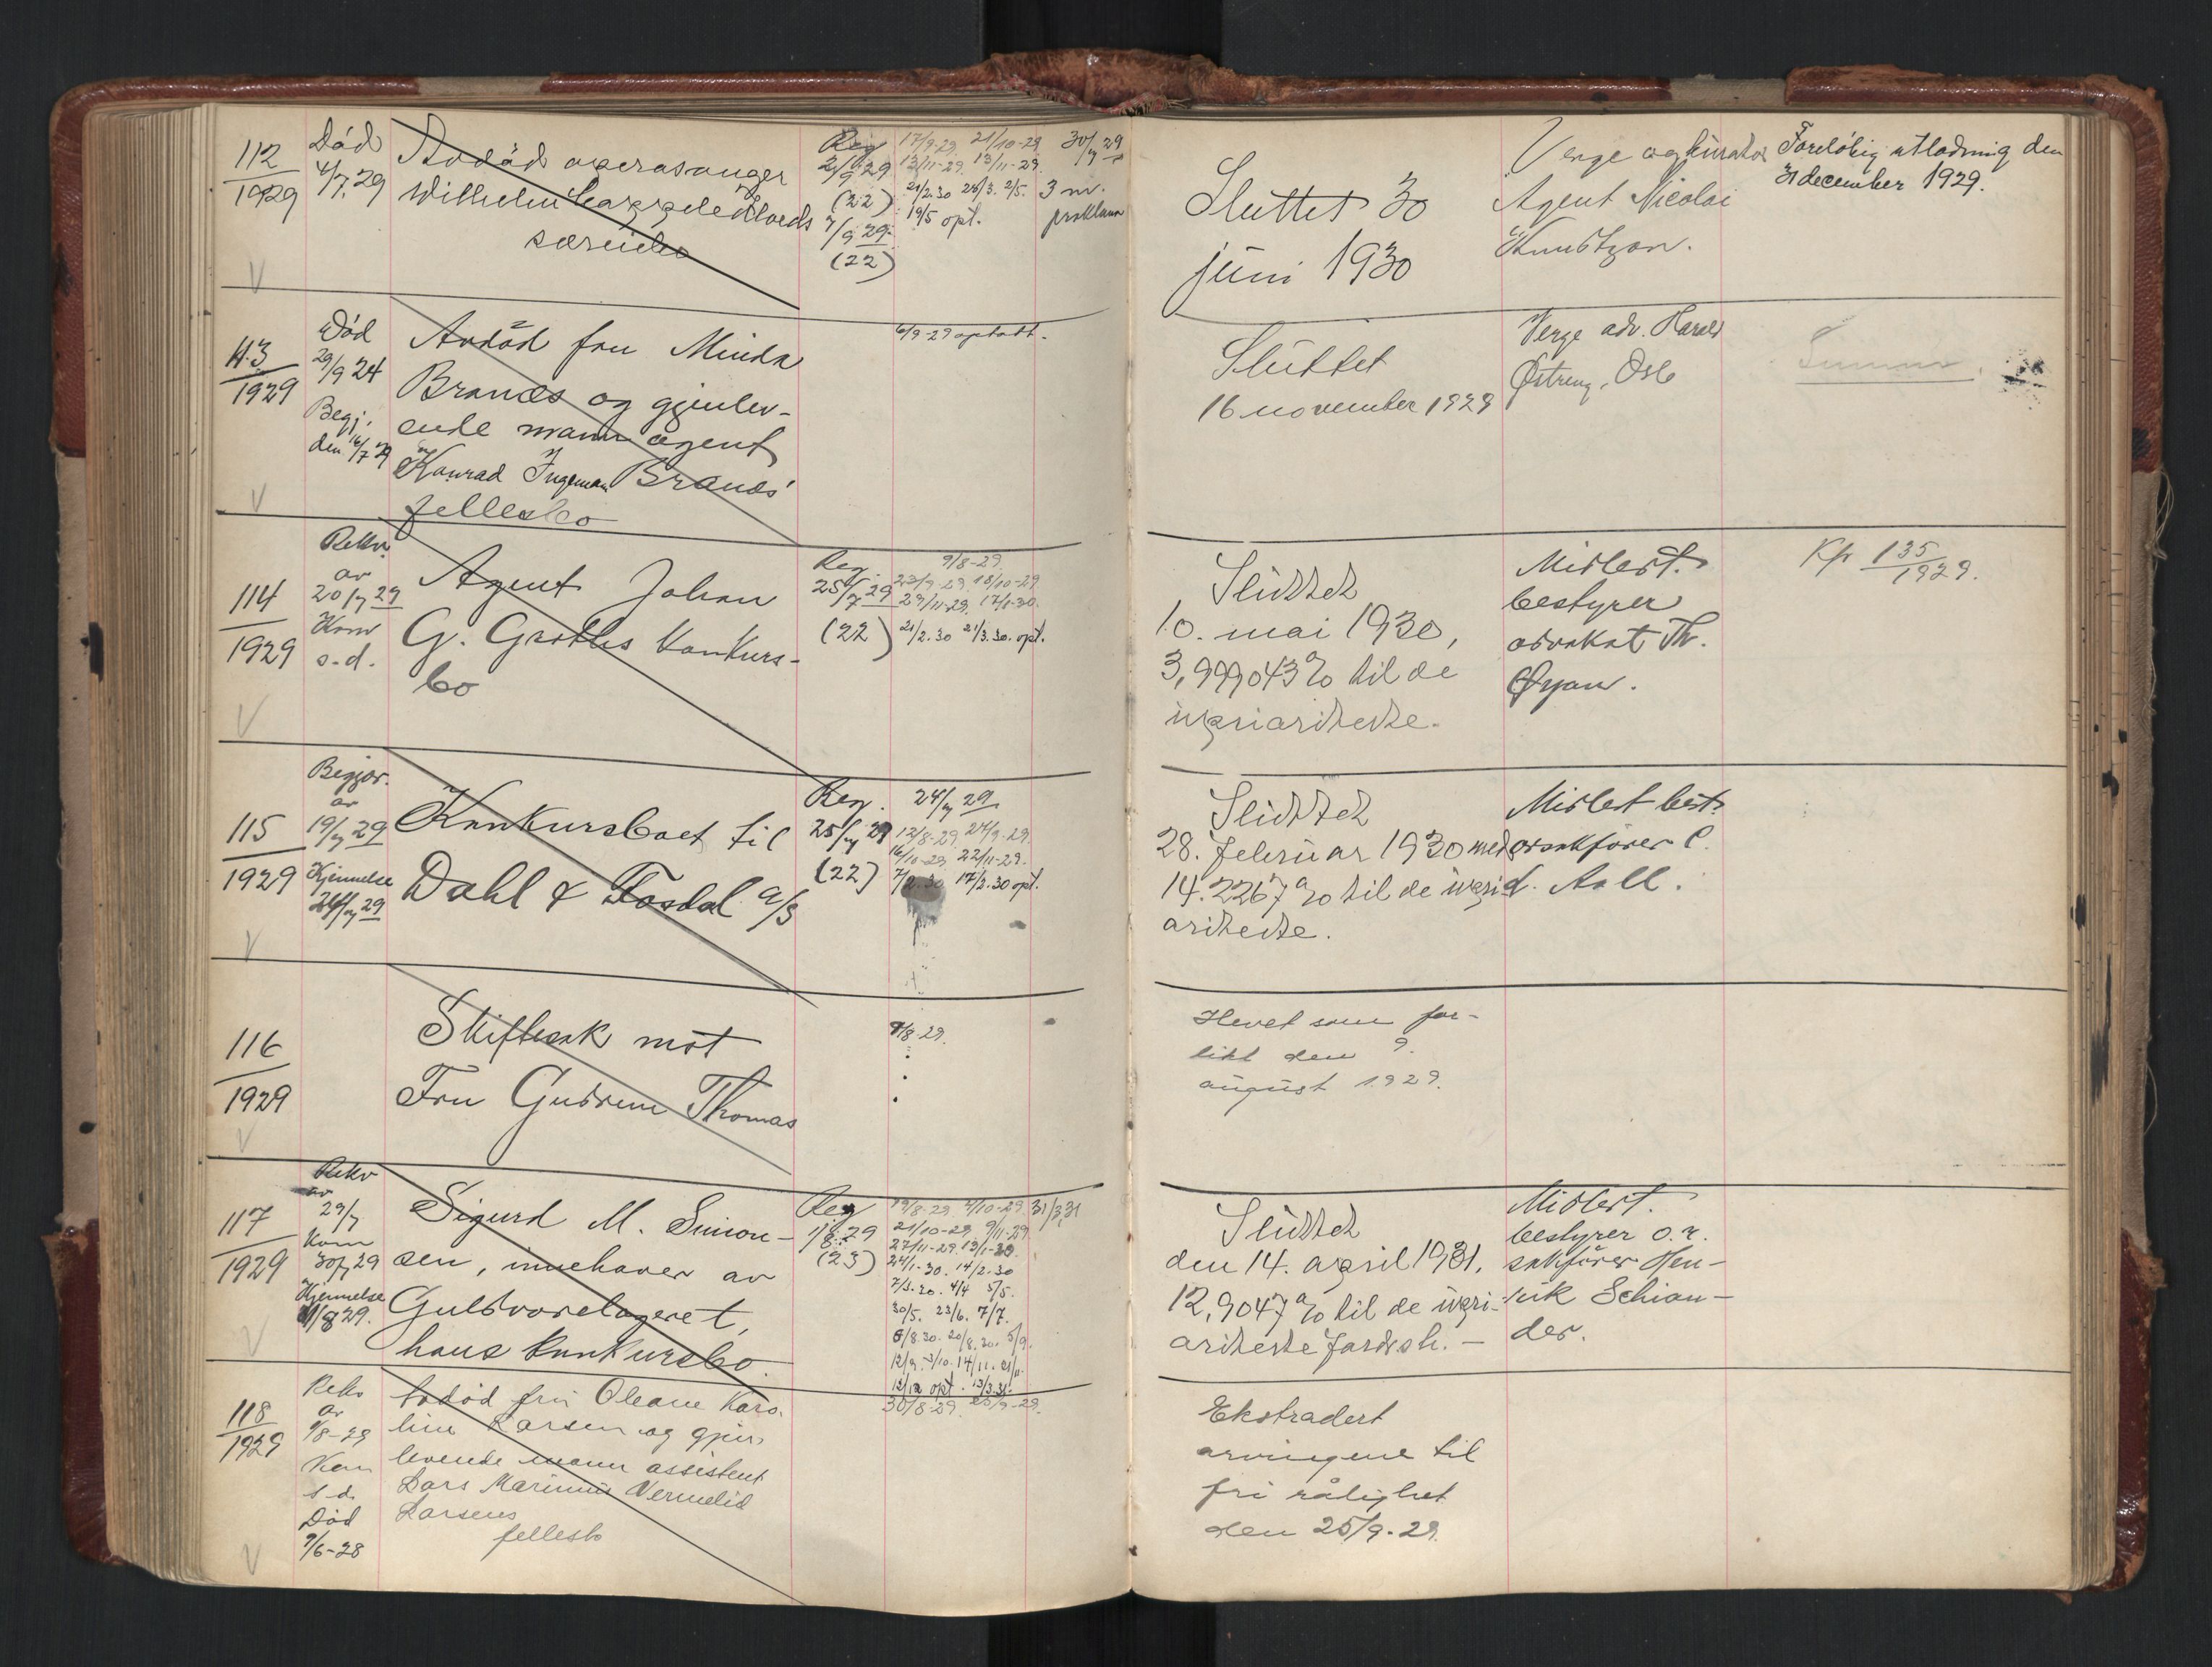 112
1929
Død
4/7.29
Avdød operasanger
Wilhelm Cappelen Kloeds
særeiebo
Reg
2/9 29
(22)
7/9 29
(22)
17/9-29. 21/10-29
12/11-29. 13/11-29.
21/2.30 26/3. 2/5.
19/5 opt.
30/7 29
3 m.
proklama
Sluttet 30
juni 1930
Verge og kurator
Agent Nicolai
Knudtzon.
Foreløbig utlodning den
31 december 1929.
113
1929
Død
29/9 24
Begj.
den 16/7 29
Avdød fru Minda
Brandes og gjenlev-
ende mann agent
Konrad Ingeman Brandes'
fellesbo
6/9-29 optatt.
Sluttet
16 november 1929
Verge adv. Harald
Østreng, Oslo
114
1929
Rekv.
av
20/7 29
Kom
s.d.
Agent Johan
G. Grøttes konkurs-
bo
Reg.
25/7 29
(22)
9/8-29.
23/9-29. 18/10-29
29/11-29. 17/1-30.
21/2.30 21/3.30. opt.
Sluttet
10. mai 1930,
3,999043 % til de
uprioriterte.
Midlert.
bestyrer
advokat Th.
Øyan.
Kfr 135
1929.
115
1929
Begjær.
av
19/7 29
Kjennelse
24/7 29
Konkursboet til
Dahl & Fosdal a/s
Reg.
25/7 29
(22)
24/7 29
12/8-29. 24/9-29.
16/10-29 22/11-29.
7/2.30 17/2.30 opt.
Sluttet
28. februar 1930 med
14.2267 % til de upri-
oriterte.
Midlert best.
orsakfører C.
d. Aall.
116
1929
Skiftesak mot
Fru Gudrun Thomas
9/8-29.
Hevet som for-
likt den 9.
august 1929.
117
1929
Rekv
av
29/7
Kom
30/7 29
Kjennelse
1/8 29.
Sigurd M. Simon-
sen, innehaver av
Gullvarelageret,
hans konkursbo
Reg
1/8 29
(23)
19/8-29. 4/10-29. 31/3.31
21/10-29 9/11-29
27/11-29 13/1-30
24/1-30. 14/2-30
7/3.30. 4/4 5/5.
30/5. 23/6. 7/7.
6/8.30. 20/8.30. 5/9.
12/9. 3/10. 14/11. 21/11.
12/12 opt. 13/3.31.
Sluttet
den 14. april 1931.
12,9047 % til de upri-
oriterte fordr.sh. –
Midlert.
bestyrer o.r.
sakfører Hen-
rik Schian-
der.
118
1929
Rekv
av
9/8-29
Kom
s.d.
Død
9/6-28
Avdød fru Oleane Karo-
line Larsen og gjen-
levende mann assistent
Lars Marinius Vermelid
Larsens
fellesbo
30/8-29. 25/9-29.
Ekstradert
arvingene til
fri rådighet
den 25/9-29.